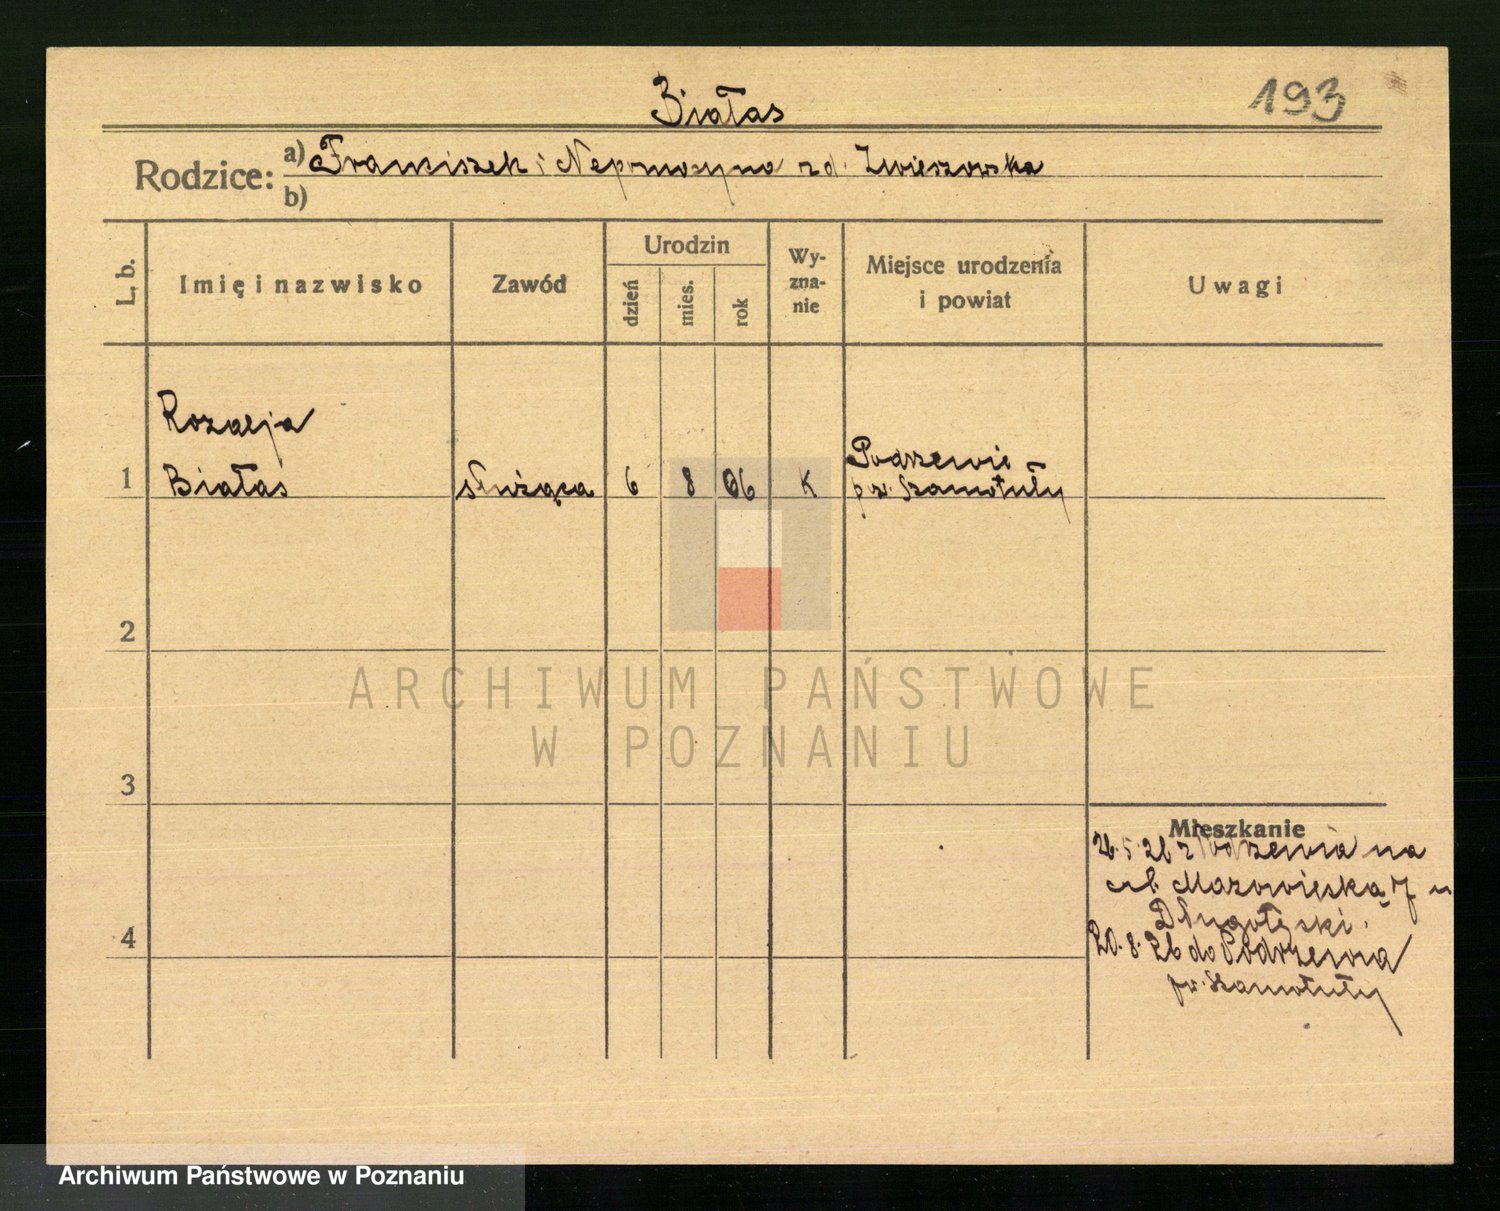 193
Białas
Rodzice: a) Franciszek i Nepomucyna zd.
b)
L. b.
Imię i nazwisko
Zawód
Urodzin
dzień
mies.
rok
Wy-
zna-
nie
Miejsce urodzenia
i powiat
Uwagi
Rozalja
1 Białas służąca 6 8 06 K Podrzewie
pw. Szamotuły
2
3
4
Mieszkanie
26.5.26 z Podrzewia na
ul. Mazowiecką 7 u
20.8.26 do Podrzewia
pw. Szamotuły
ARCHIWUM PAŃSTWOWE
W POZNANIU
Archiwum Państwowe w Poznaniu